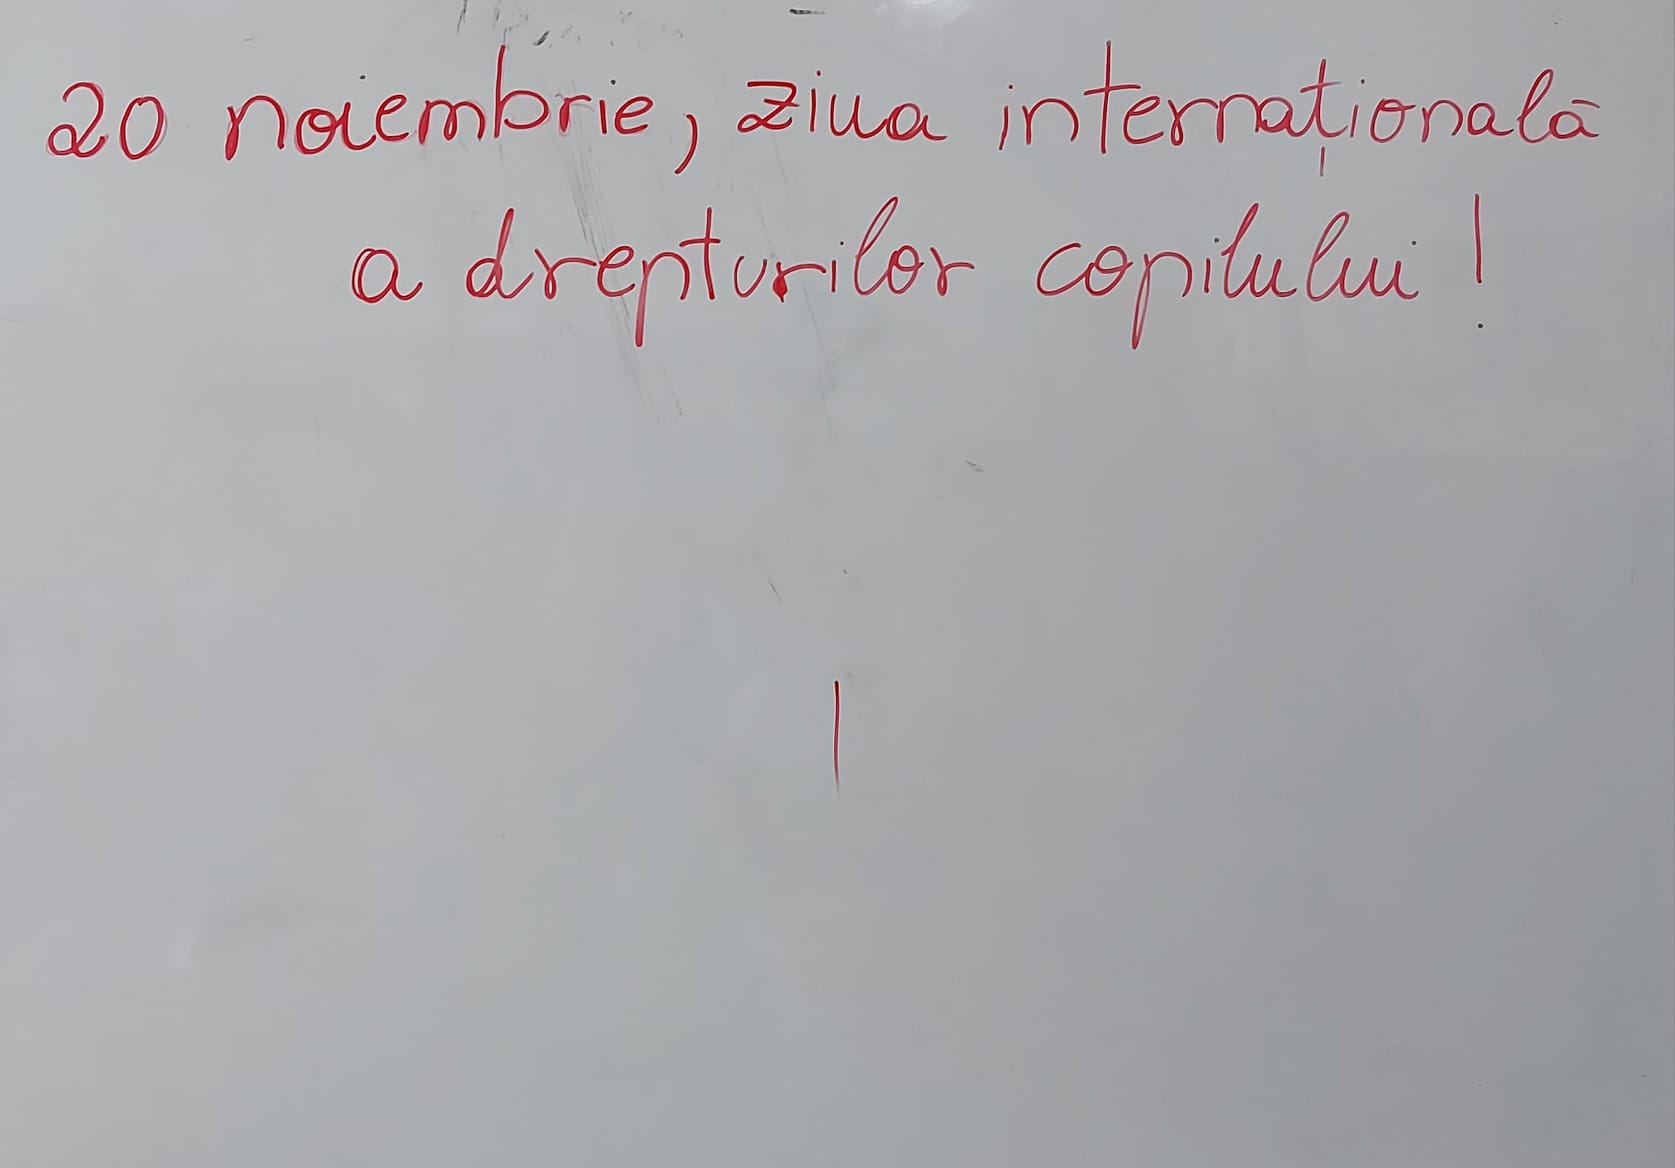 20 noiembrie, ziua internațională
a drepturilor copilului!